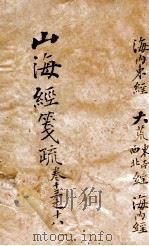 海內東經 大荒東南西北經 海內經
山海經箋疏 卷十三之十八